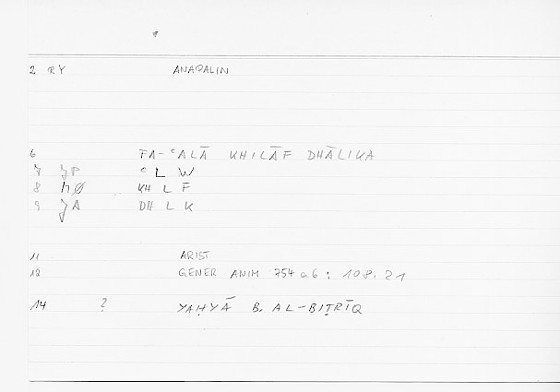 2 RY ANAPALIN
6 FA-ʿALĀ KHILĀF DHĀLIKA
7 JP ʿ L W
8 NØ KH L F
9 JA DH L K
11 ARIST
12 GENER ANIM 754 a 6 : 108.21
14 ? YAḤYĀ B. AL-BIṬRĪQ